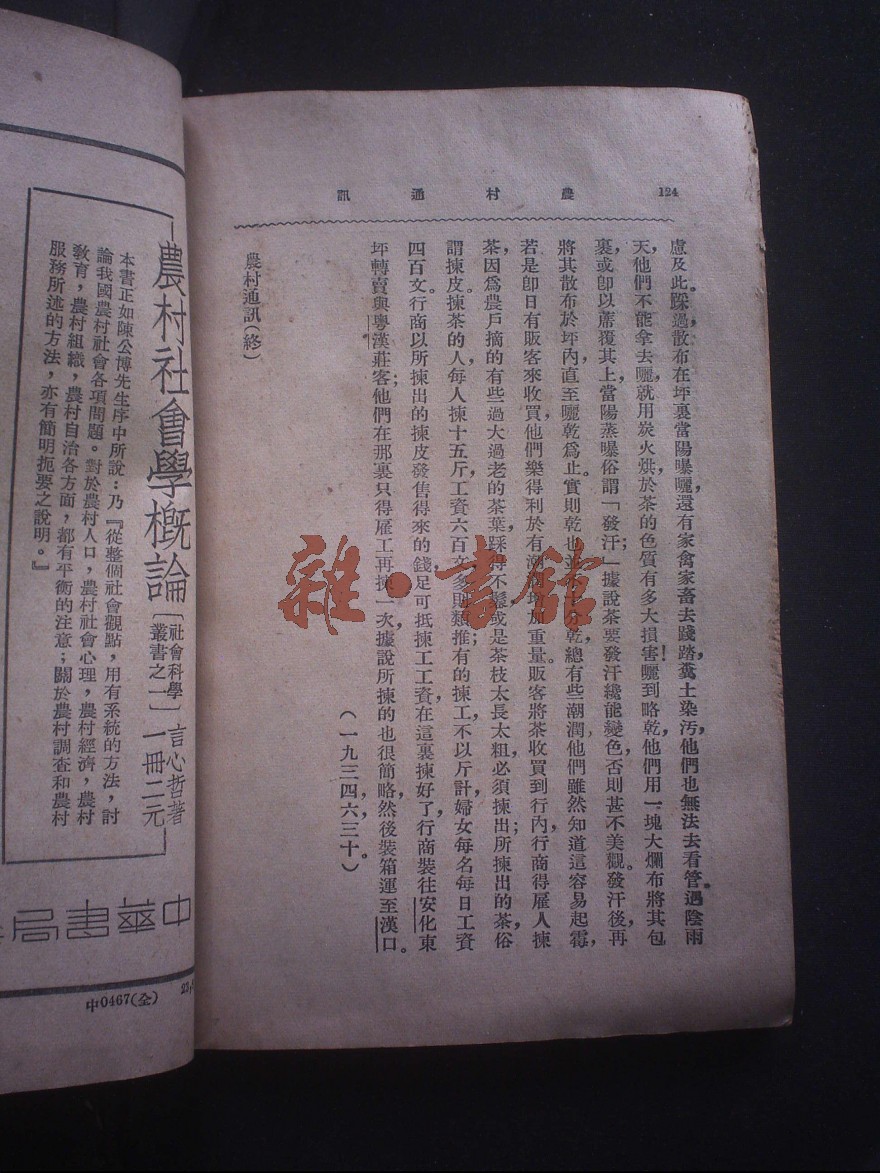 124
農村通訊
慮及此。踩過散布在坪裏當陽曝曬，還有家禽家畜去踐踏，糞土染污，他們也無法去看管。遇陰雨
天，他們不能拿去曬，就用炭火烘，於茶的色質有多大損害！曬到略乾，他們用一塊大爛布將其包
裹，或卽以蓆覆其上，當陽蒸曝，俗謂「發汗；」據說茶要發汗纔能變色，否則甚不美觀。發汗後，再
將其散布於坪內，直至曬乾爲止。實則乾也並不十分乾，總有些潮潤，他們雖然知道這容易起霉，
若是卽日有販客來收買，他們樂得利於有潮
加重量。販客將茶收買到行內，行商得雇人揀
茶，因爲農戶摘的有些過大過老的茶葉，踩得不
或是茶枝太長太粗，必須揀出；所揀出的茶，俗
謂揀皮。揀茶的人，每人揀十五斤，工資六百文，多則類推；有的揀工不以斤計，婦女每名每日工資
四百文。行商以所揀出的揀皮發售得來的錢，足可抵揀工工資，在這裏揀好了，行商裝往安化東
坪轉賣與粵漢莊客；他們在那裏只得雇工再揀一次，據說所揀的也很簡略，然後裝箱運至漢口。
（一九三四，六，三十。）
農村通訊（終）
農村社會學概論
〔社會科學叢書之一〕
言心哲著
一冊二元
本書正如陳公博先生序中所說：乃『從整個社會觀點，用有系統的方法，討
論我國農村社會各項問題。對於農村人口，農村社會心理，農村經濟，農村
教育，農村組織，農村自治各方面，都有平衡的注意；關於農村調查和農村
服務所述的方法，亦有簡明扼要之說明。』
中華書局
中0467(全)
雜·書館